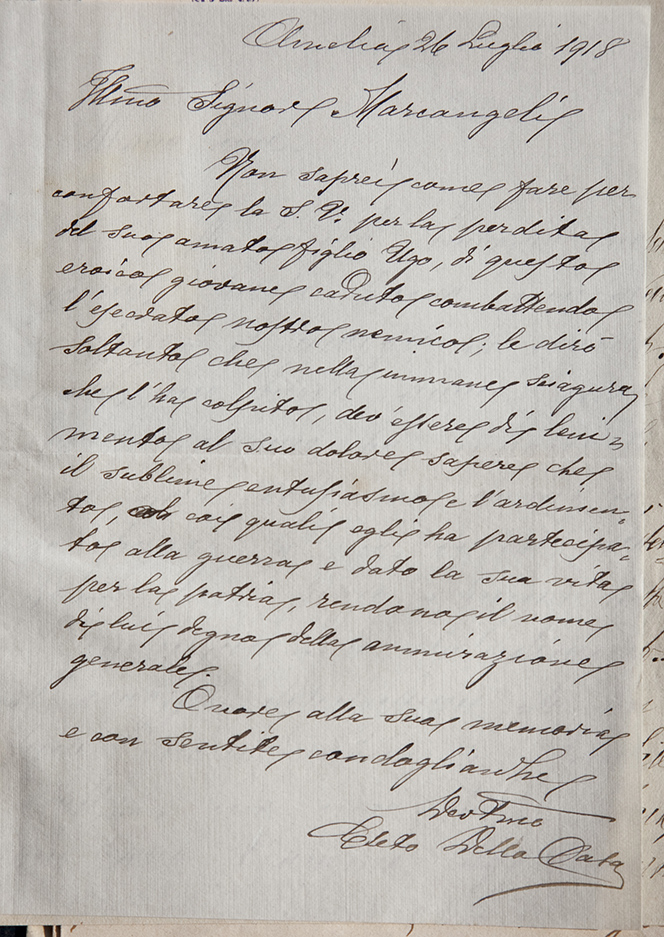 Amelia, 26 Luglio 1918
Illmo Signore Marcangeli
Non saprei come fare per
confortare la S. V. per la perdita
del suo amato figlio Ugo, di questo
eroico giovane caduto combattendo
l'esecrato nostro nemico; le dirò
soltanto che nella immane sciagura
che l'ha colpito, dev'essere di leni=
mento al suo dolore sapere che
il sublime entusiasmo e l'ardimen=
to, coi quali egli ha partecipa=
to alla guerra e dato la sua vita
per la patria, rendono il nome
di lui degno della ammirazione
generale.
Onore alla sua memoria
e con sentite condoglianze
Devtmo
Della Casa